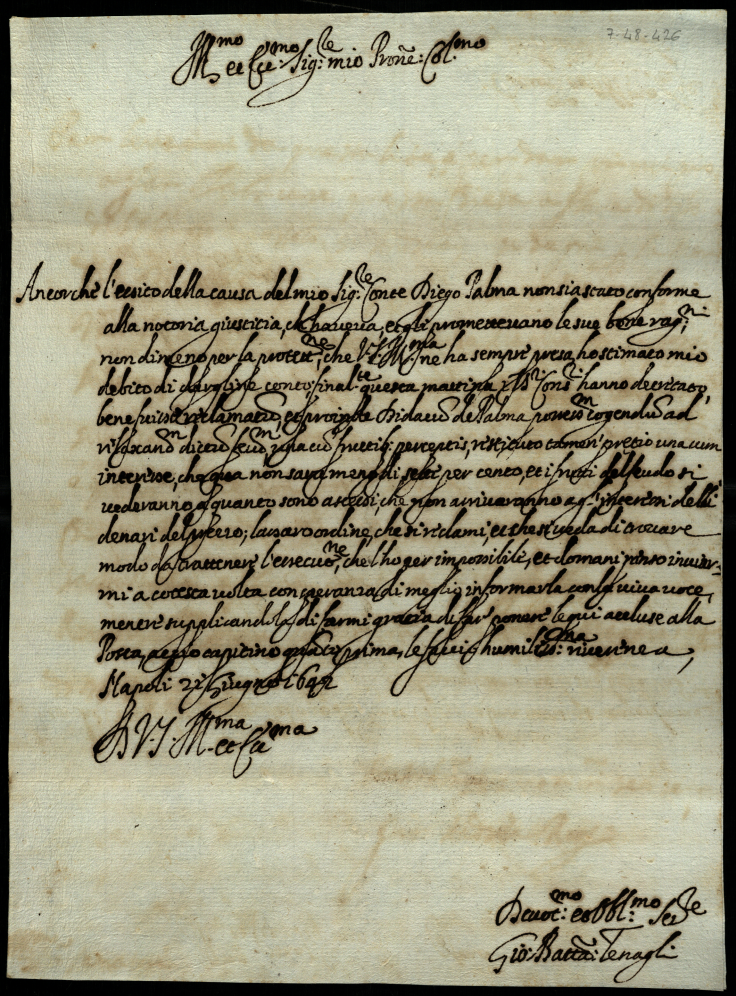 7-48-426
Ill.mo et Ecc.mo Sig.re mio Prone: Col.mo
Ancorchè l'esito della causa del mio Sig.re Conte Diego Palma non sia stato conforme
alla notoria giustitia, ch'haveva, et gli promettevano le sue bone rag.ni
nondimeno per la protett.ne, che V.S. Ill.ma ne ha sempre presa, ho stimato mio
debito di dargline conto final.te questa mattina Cons.ri hanno decretato,
bene fuisse reclamatũ, et proinde Didacũ de Palma cogendũ ad
una cũ fructib: perceptis, restituto tamen pretio una cum
interesse, che qua non sarà meno di sette per cento, et i frutti del feudo si
vederanno a quanto sono ascesi che non arrivaranno a gl'interessi delli
denari del ordine, che si reclami, et che si veda di trovare
modo da trattenere l'esecut.ne, che l'ho per impossibile, et domani penso inviar-
mi a cotesta volta con speranza di meglio informarla con la viva voce,
mentre supplicandola di farmi gratia di far ponere le qui accluse alla
Posta, acciò capitino quanto prima, le faccio humiliss.ma riverenza,
Napoli Giugno 164
D V.S. Ill.ma et Ecc.ma
Devot.mo et Obl.mo Ser.re
Gio: Batta: Tenagli